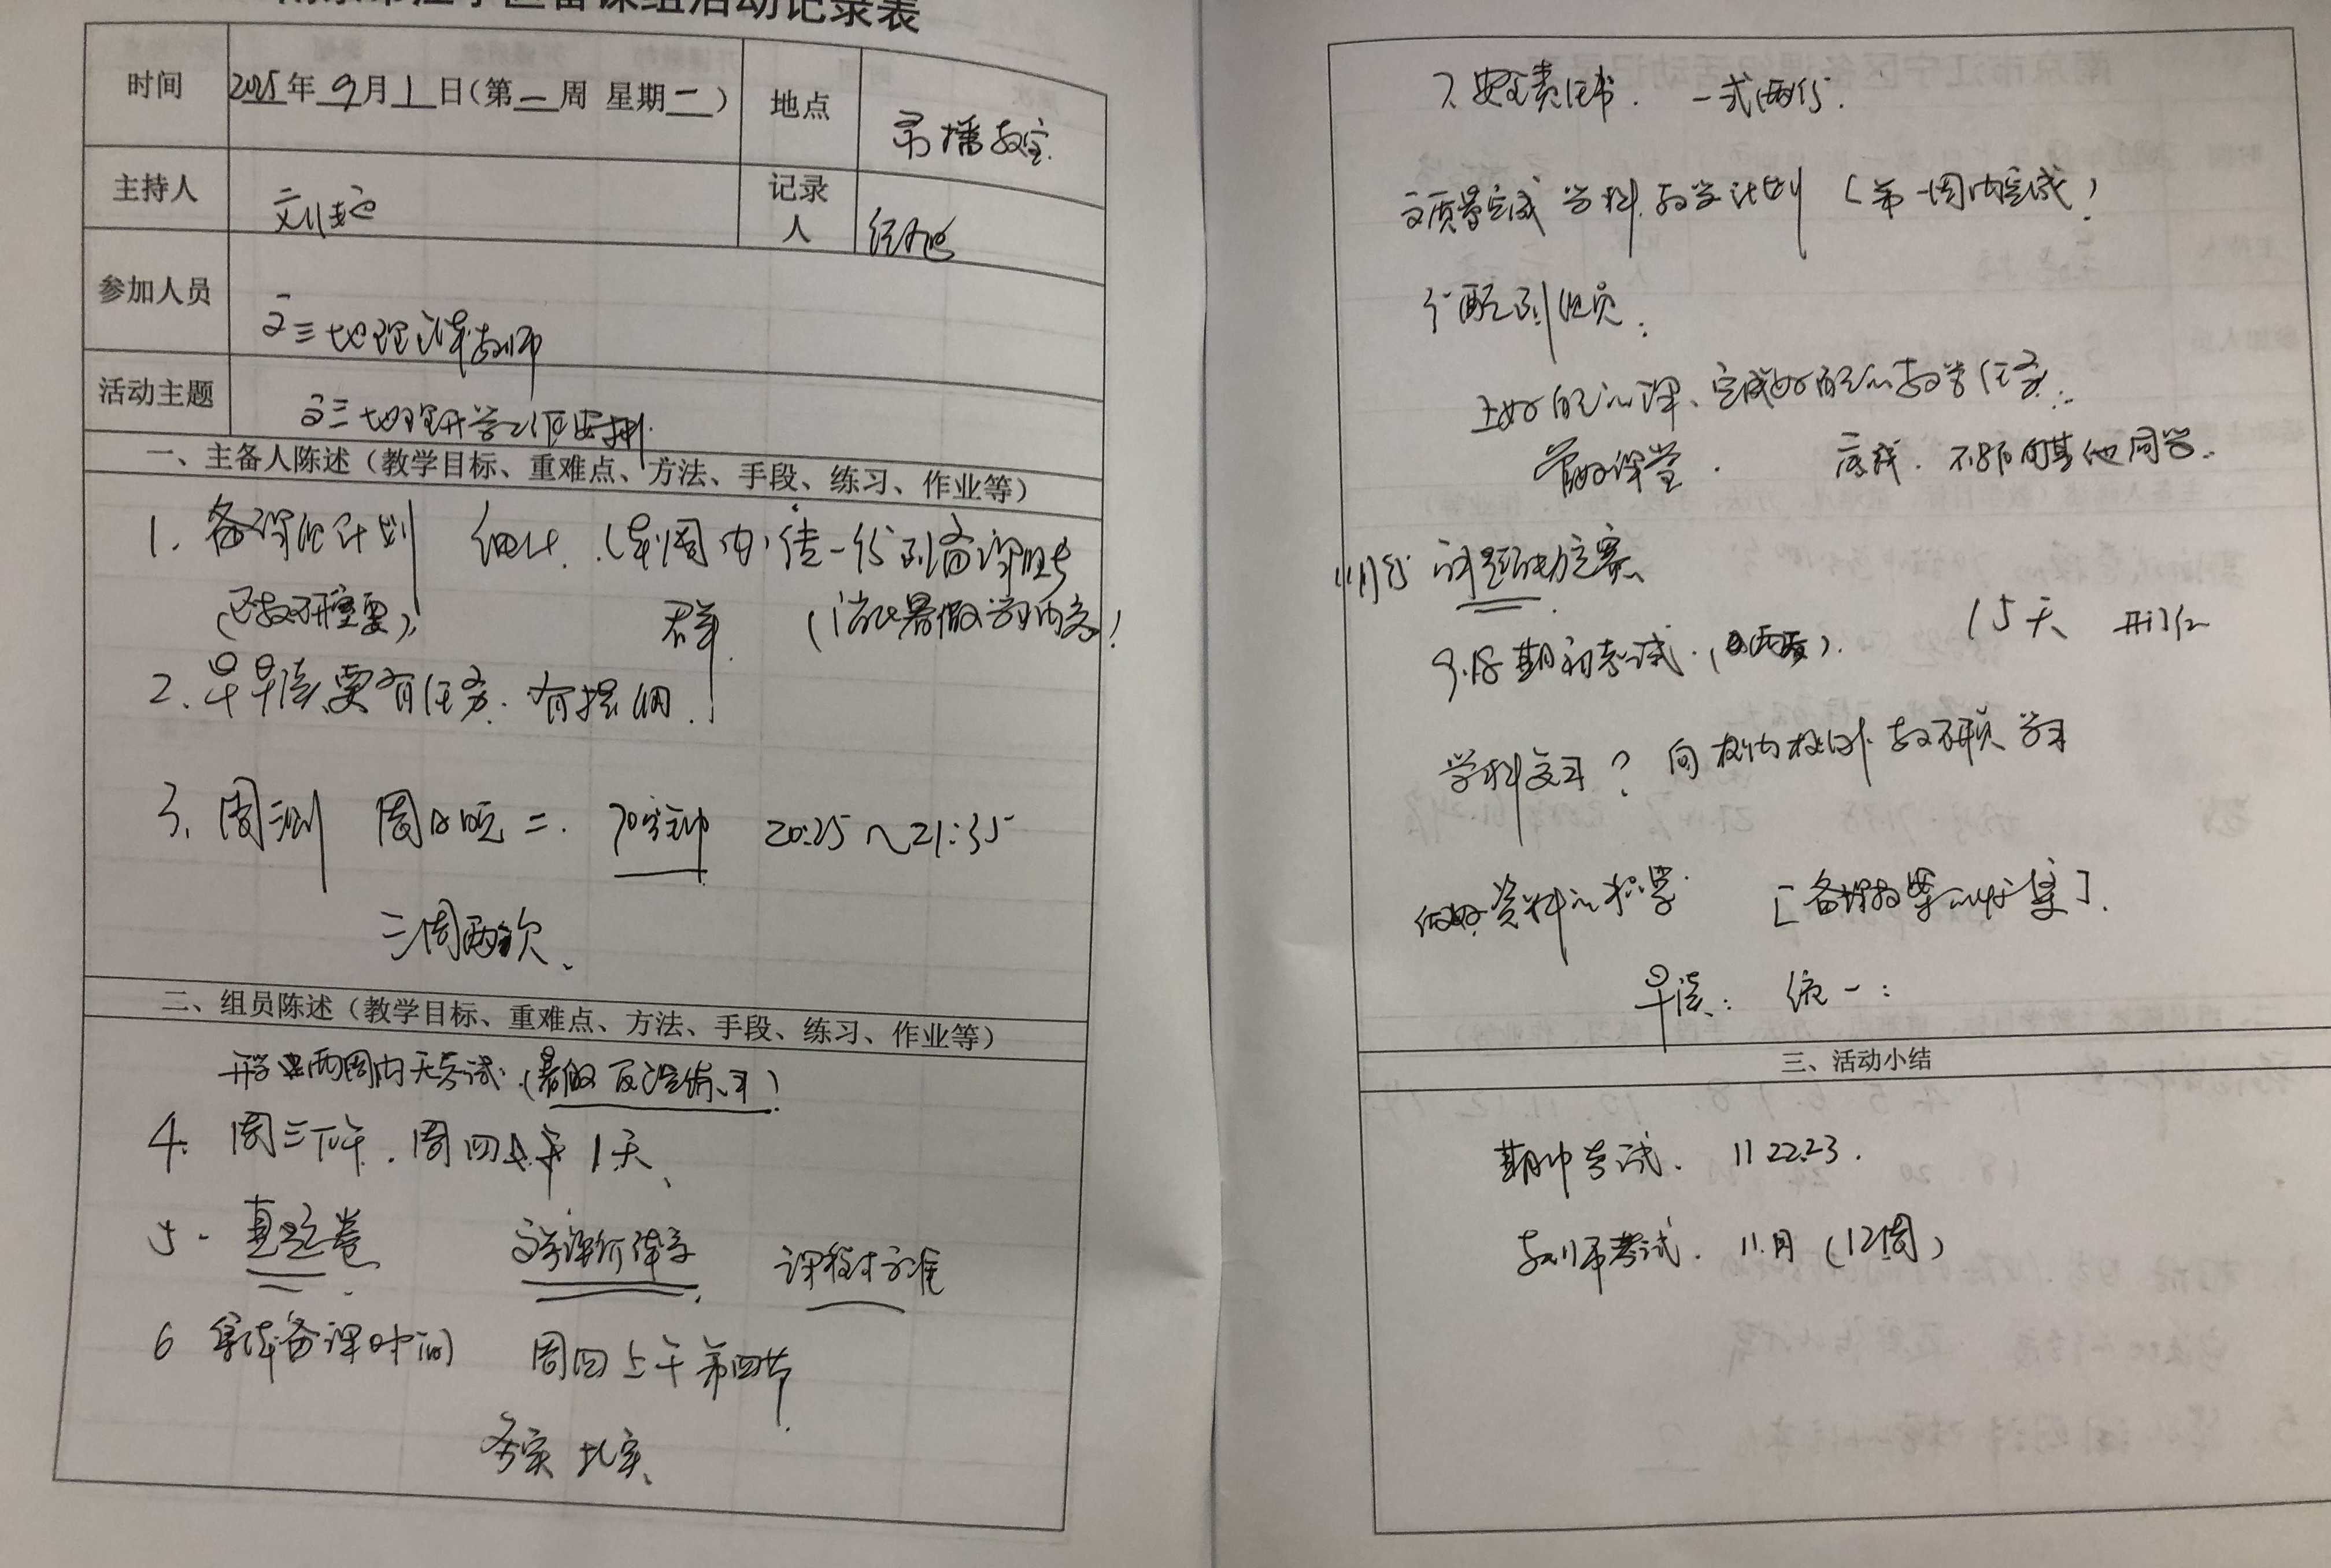 南京市江宁区备课组活动记录表
时间 2025年9月1日(第一周 星期二) 地点 录播教室
主持人 记录人
参加人员 高三地理备课教师
活动主题 高三地理开学工作安排
一、主备人陈述（教学目标、重难点、方法、手段、练习、作业等）
1. 备课组计划 细化.(本周内)传一份到备课组长
(区教研重要) 群. (消化暑假学习内容)
2. 早早读要有任务. 有提纲.
3. 周测 周日晚二. 70分钟 20:25~21:35
三周两次、
二、组员陈述（教学目标、重难点、方法、手段、练习、作业等）
开学两周内无考试.(暑假反馈练习)
4. 周三下午. 周四上午 1天、
5. 真题卷 高考评价体系 课程标准
6 集体备课时间 周四上午第四节
务实 扎实、
7. 安全责任书. 一式两份.
高质量完成学科教学计划 (第一周内完成)
分配到组员:
上好自己的课、完成好自己的教学任务.
管好课堂. 底线. 不影响其他同学.
11月份
9.18 期初考试. 15天
学科复习? 向校内校外教研员学习
做好资料的积累. [备课教案的收集].
早读: 统一:
三、活动小结
期中考试. 11 22.23.
教师考试. 11月 (12周)